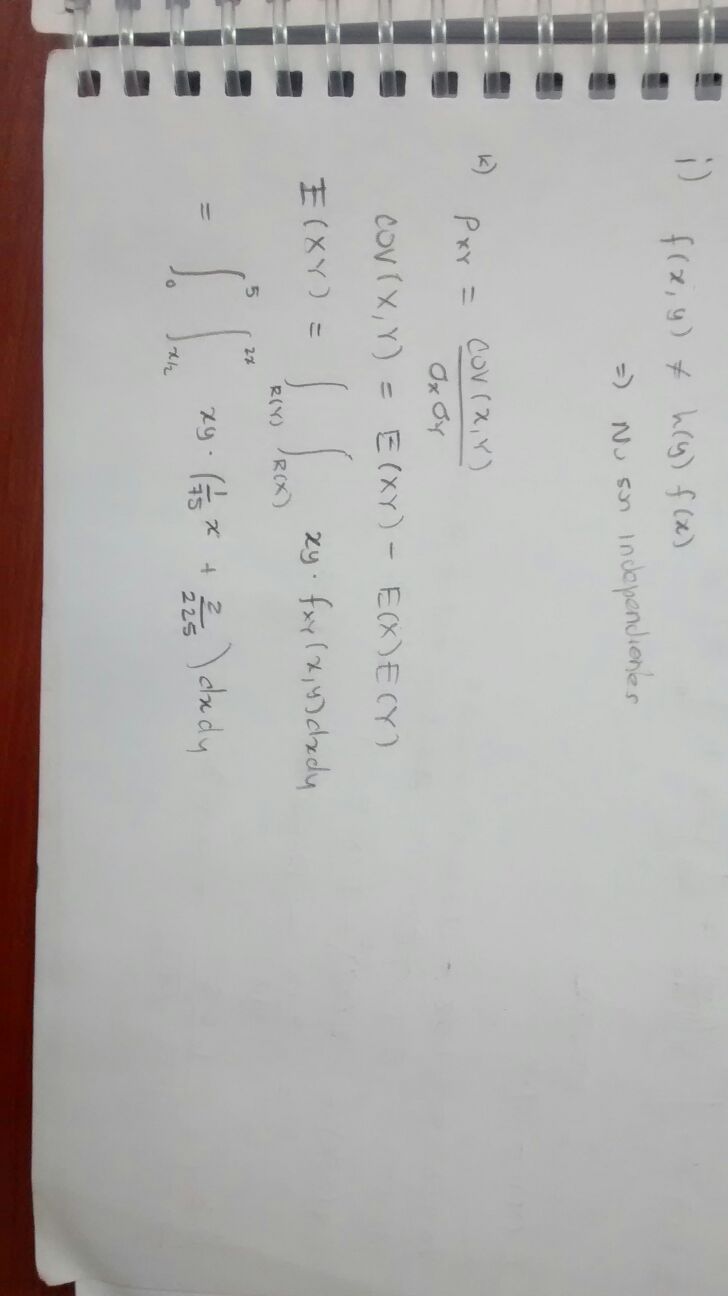 i) f(x,y) ≠ h(y) f(x)
⇒) No son independientes
k) ρxy = COV(X,Y) / σx σy
COV(X,Y) = E(XY) - E(X)E(Y)
E(XY) = ∫R(Y) ∫R(X) xy · fxy(x,y)dxdy
= ∫₀⁵ ∫x/2^2x xy · (1/75 x + 2/225) dxdy